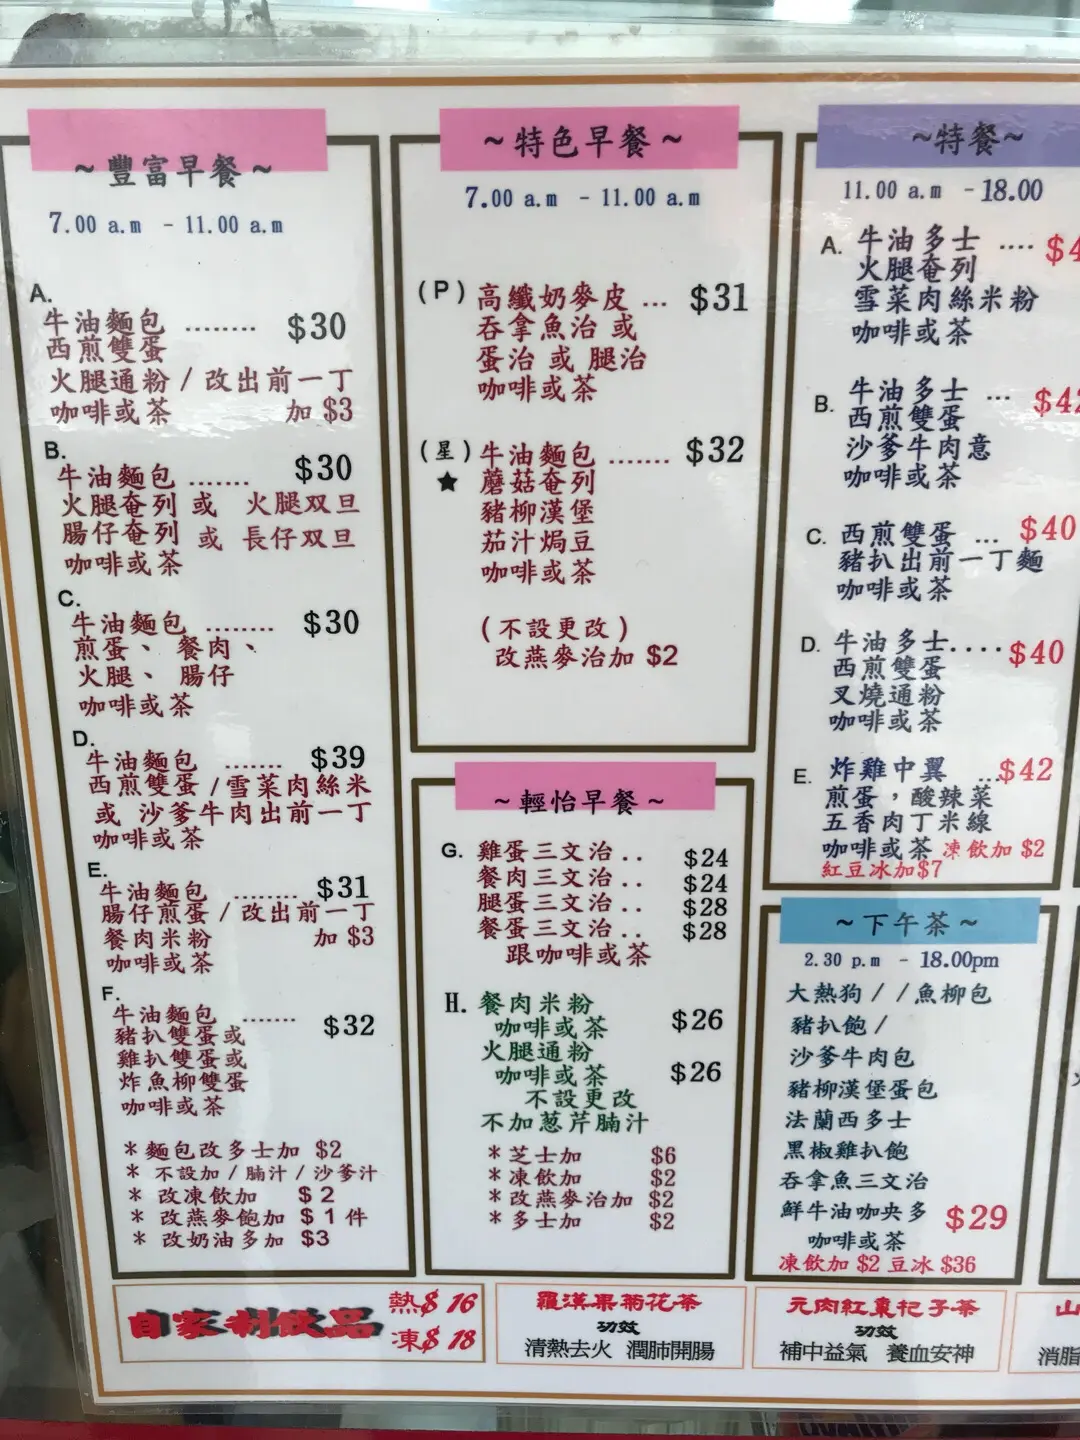 ~豐富早餐~
7.00 a.m - 11.00 a.m
A.
牛油麵包 ........ $30
西煎雙蛋
火腿通粉 / 改出前一丁
咖啡或茶 加 $3
B.
牛油麵包 ....... $30
火腿奄列 或 火腿双旦
腸仔奄列 或 長仔双旦
咖啡或茶
C.
牛油麵包 ........ $30
煎蛋、 餐肉、
火腿、 腸仔
咖啡或茶
D.
牛油麵包 ....... $39
西煎雙蛋 /雪菜肉絲米
或 沙爹牛肉出前一丁
咖啡或茶
E.
牛油麵包 ........ $31
腸仔煎蛋 / 改出前一丁
餐肉米粉 加 $3
咖啡或茶
F.
牛油麵包 ....... $32
豬扒雙蛋或
雞扒雙蛋或
炸魚柳雙蛋
咖啡或茶
* 麵包改多士加 $2
* 不設加 / 腩汁 / 沙爹汁
* 改凍飲加 $ 2
* 改燕麥飽加 $ 1 件
* 改奶油多加 $3
~特色早餐~
7.00 a.m - 11.00 a.m
(P) 高纖奶麥皮 ... $31
吞拿魚治 或
蛋治 或 腿治
咖啡或茶
(星) 牛油麵包 ....... $32
★ 蘑菇奄列
豬柳漢堡
茄汁焗豆
咖啡或茶
(不設更改)
改燕麥治加 $2
~輕怡早餐~
G. 雞蛋三文治.. $24
餐肉三文治.. $24
腿蛋三文治.. $28
餐蛋三文治.. $28
跟咖啡或茶
H. 餐肉米粉
咖啡或茶 $26
火腿通粉
咖啡或茶 $26
不設更改
不加葱芹腩汁
* 芝士加 $6
* 凍飲加 $2
* 改燕麥治加 $2
* 多士加 $2
~特餐~
11.00 a.m - 18.00
A. 牛油多士 .... $4
火腿奄列
雪菜肉絲米粉
咖啡或茶
B. 牛油多士 ... $42
西煎雙蛋
沙爹牛肉意
咖啡或茶
C. 西煎雙蛋 ... $40
豬扒出前一丁麵
咖啡或茶
D. 牛油多士.... $40
西煎雙蛋
叉燒通粉
咖啡或茶
E. 炸雞中翼 ...$42
煎蛋，酸辣菜
五香肉丁米線
咖啡或茶 凍飲加 $2
紅豆冰加$7
~下午茶~
2.30 p.m - 18.00pm
大熱狗 / /魚柳包
豬扒飽 /
沙爹牛肉包
豬柳漢堡蛋包
法蘭西多士
黑椒雞扒飽
吞拿魚三文治
鮮牛油咖央多 $29
咖啡或茶
凍飲加 $2 豆冰 $36
自家制飲品 熱$ 16
凍$ 18
羅漢果菊花茶
功效
清熱去火 潤肺開腸
元肉紅棗杞子茶
功效
補中益氣 養血安神
山
消脂